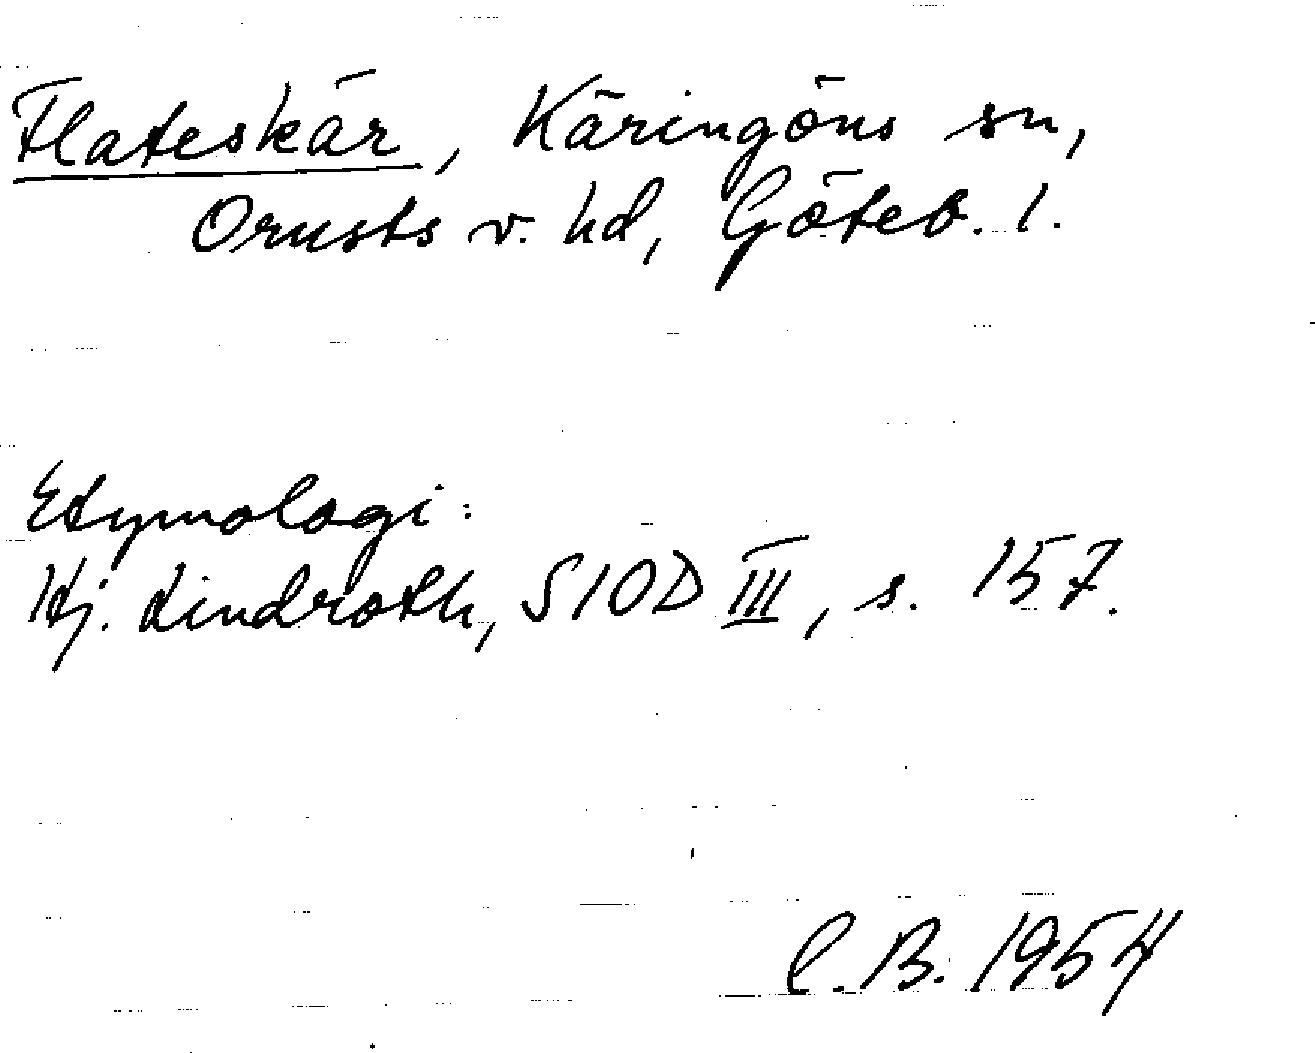 Flateskär, Käringöns sn,
Orusts v. hd, Göteb. l.
Etymologi:
Hj. Lindroth, SIOD III, s. 157.
C.B. 1954